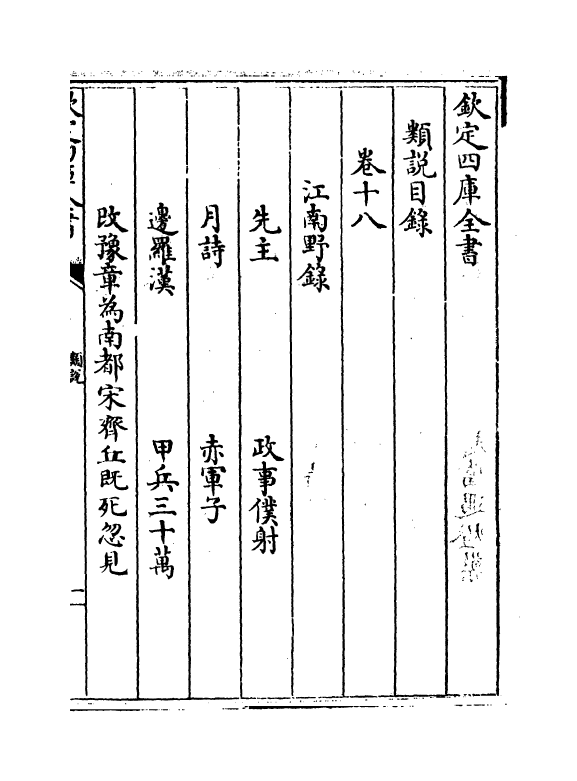 欽定四庫全書
類說目錄
卷十八
江南野錄
先主
政事僕射
月詩
赤軍子
邊羅漢
甲兵三十萬
改豫章為南都宋齊丘既死忽見
類說